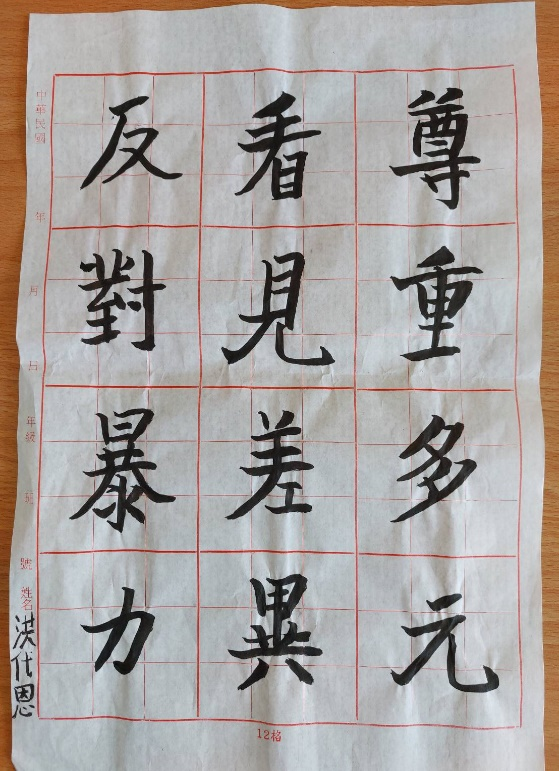 尊重多元
看見差異
反對暴力
中華民國 年 月 日 年級 班 號 姓名 洪代恩
12格